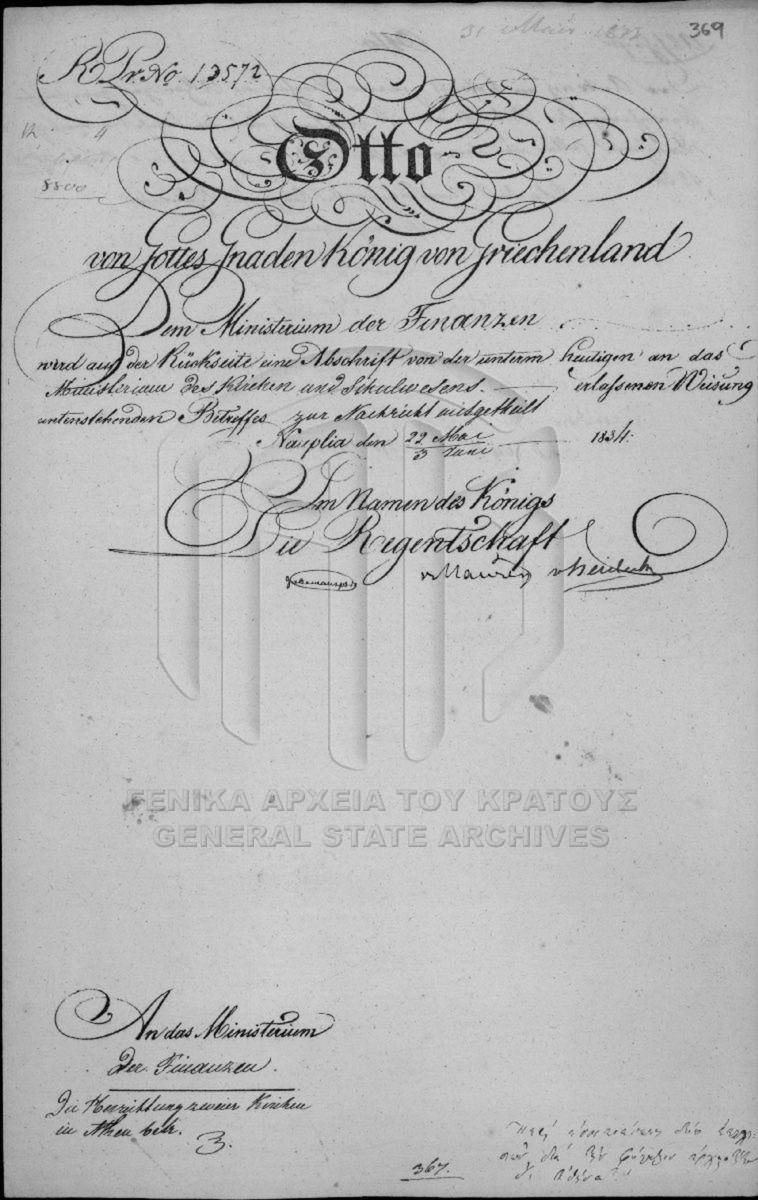 369
R Pr. No. 13572
12 4
8800
Otto
von Gottes Gnaden König von Griechenland
Dem Ministerium der Finanzen
wird auf der Rückseite eine Abschrift von der unterm heutigen an das
Ministerium des Kirchen und Schulwesens erlassenen Weisung
untenstehenden Betreffes zur Nachricht mitgetheilt
Nauplia den 22 Mai / 3 Juni 1834.
Im Namen des Königs
Die Regentschaft
v Maurer v Heideck
ΓΕΝΙΚΑ ΑΡΧΕΙΑ ΤΟΥ ΚΡΑΤΟΥΣ
GENERAL STATE ARCHIVES
An das Ministerium
der Finanzen.
Die Herrichtung zweier Kirchen
in Athen betr.
367.